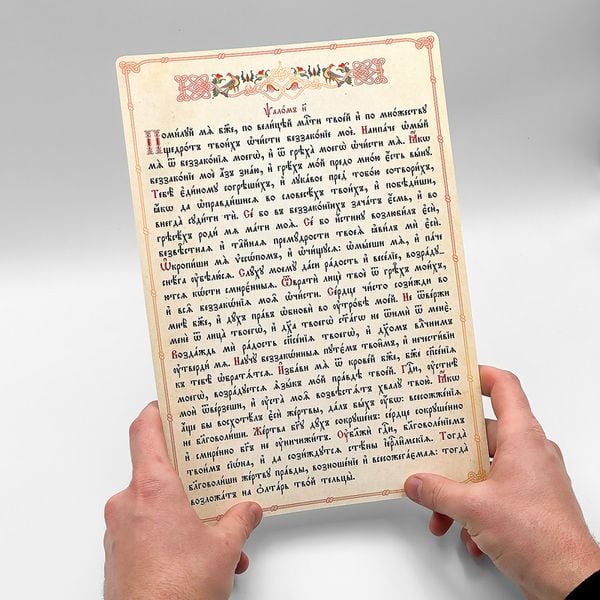 Ѱало́мъ н҃
Поми́лꙋй мѧ̀ бж҃е, по вели́цѣй млⷭ҇ти твое́й и҆ по мно́жествꙋ
щедро́тъ твои́хъ ѡ҆чи́сти беззако́нїе моѐ. Наипа́че ѡ҆мы́й
мѧ̀ ѿ беззако́нїѧ моегѡ̀, и҆ ѿ грѣха̀ моегѡ̀ ѡ҆чи́сти мѧ̀. Ꙗ҆́кѡ
беззако́нїе моѐ а҆́зъ зна́ю, и҆ грѣ́хъ мо́й предо мно́ю є҆́сть вы́нꙋ.
Тебѣ̀ є҆ди́номꙋ согрѣши́хъ, и҆ лꙋка́вое пред̾ тобо́ю сотвори́хъ,
ꙗ҆́кѡ да ѡ҆правди́шисѧ во словесѣ́хъ твои́хъ, и҆ побѣди́ши,
внегда̀ сꙋди́ти тѝ. Се́ бо въ беззако́нїихъ зача́тъ є҆́смь, и҆ во
грѣсѣ́хъ родѝ мѧ̀ ма́ти моѧ̀. Се́ бо и҆́стинꙋ возлюби́лъ є҆сѝ,
безвѣ́стнаѧ и҆ та̑йнаѧ премꙋ́дрости твоеѧ̀ ꙗ҆ви́лъ мѝ є҆сѝ.
Ѡ҆кропи́ши мѧ̀ ѵ҆ссѡ́помъ, и҆ ѡ҆чи́щꙋсѧ: ѡ҆мы́еши мѧ̀, и҆ па́че
снѣ́га ᲂу҆бѣлю́сѧ. Слꙋ́хꙋ моемꙋ̀ да́си ра́дость и҆ весе́лїе, возра́дꙋ-
ютсѧ кѡ́сти смирє́нныѧ. Ѿвратѝ лицѐ твоѐ ѿ грѣ̑хъ мои́хъ,
и҆ всѧ̑ беззакѡ́нїѧ моѧ̑ ѡ҆чи́сти. Се́рдце чи́сто сози́жди во
мнѣ̀ бж҃е, и҆ дꙋ́хъ пра́въ ѡ҆бновѝ во ᲂу҆тро́бѣ мое́й. Не ѿве́ржи
менѐ ѿ лица̀ твоегѡ̀, и҆ дх҃а твоегѡ̀ ст҃а́гѡ не ѿимѝ ѿ менє̀.
Возда́ждь мѝ ра́дость спⷭ҇е́нїѧ твоегѡ̀, и҆ дх҃омъ влⷣчнимъ
ᲂу҆твердѝ мѧ̀. Наꙋчꙋ̀ беззакѡ́нныѧ пꙋтє́мъ твои̑мъ, и҆ нечести́вїи
къ тебѣ̀ ѡ҆братѧ́тсѧ. И҆зба́ви мѧ̀ ѿ крове́й бж҃е, бж҃е спⷭ҇е́нїѧ
моегѡ̀, возра́дꙋетсѧ ѧ҆зы́къ мо́й пра́вдѣ твое́й. Гдⷭ҇и, ᲂу҆стнѣ̀
моѝ ѿве́рзеши, и҆ ᲂу҆ста̀ моѧ̑ возвѣстѧ́тъ хвалꙋ̀ твою̀. Ꙗ҆́кѡ
а҆́ще бы восхотѣ́лъ є҆сѝ же́ртвы, да́лъ бы́хъ ᲂу҆́бѡ: всесожжє́нїѧ
не бл҃говоли́ши. Же́ртва бг҃ꙋ дꙋ́хъ сокрꙋше́нъ: се́рдце сокрꙋше́нно
и҆ смире́нно бг҃ъ не ᲂу҆ничижи́тъ. Оу҆блажѝ гдⷭ҇и, бл҃говоле́нїемъ
твои́мъ сїѡ́на, и҆ да сози́ждꙋтсѧ стѣ́ны і҆ерⷭ҇ли̑мскїѧ. Тогда̀
бл҃говоли́ши же́ртвꙋ пра́вды, возноше́нїе и҆ всесожега́ємаѧ: тогда̀
возложа́тъ на ѻ҆лта́рь тво́й тельцы̀.